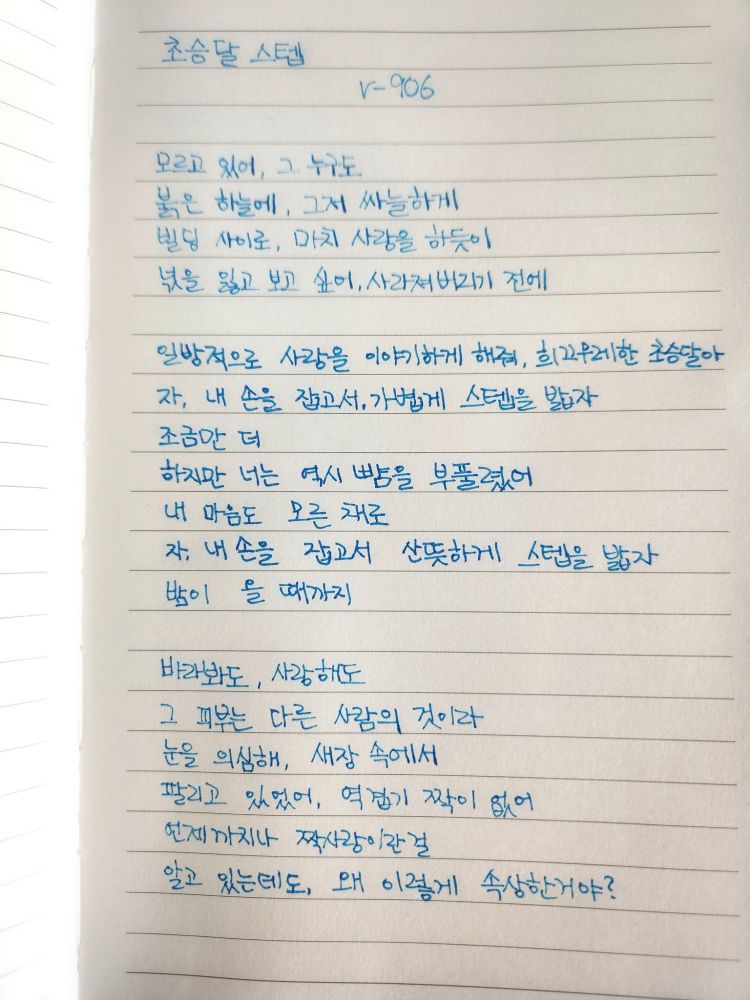 초승달 스텝
r-906
모르고 있어, 그 누구도
붉은 하늘에, 그저 싸늘하게
빌딩 사이로, 마치 사랑을 하듯이
넋을 잃고 보고 싶어, 사라져버리기 전에
일방적으로 사랑을 이야기하게 해줘, 희끄무레한 초승달아
자, 내 손을 잡고서, 가볍게 스텝을 밟자
조금만 더
하지만 너는 역시 뺨을 부풀렸어
내 마음도 모른 채로
자, 내 손을 잡고서 산뜻하게 스텝을 밟자
밤이 올 때까지
바라봐도, 사랑해도
그 피부는 다른 사람의 것이라
눈을 의심해, 새장 속에서
팔리고 있었어, 역겹기 짝이 없어
언제까지나 짝사랑이란걸
알고 있는데도, 왜 이렇게 속상한거야?